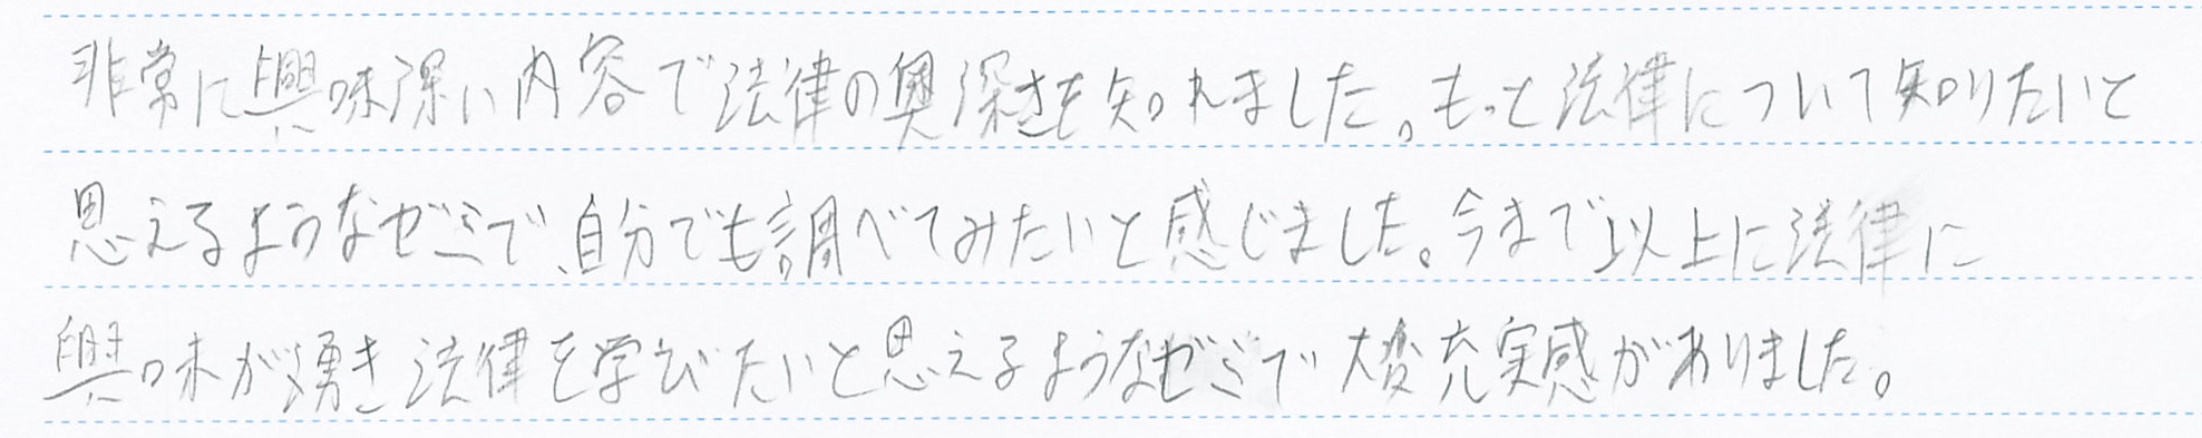 非常に興味深い内容で法律の奥深さを知れました。もっと法律について知りたいと
思えるようなゼミで、自分でも調べてみたいと感じました。今まで以上に法律に
興味が湧き法律を学びたいと思えるようなゼミで大変充実感がありました。